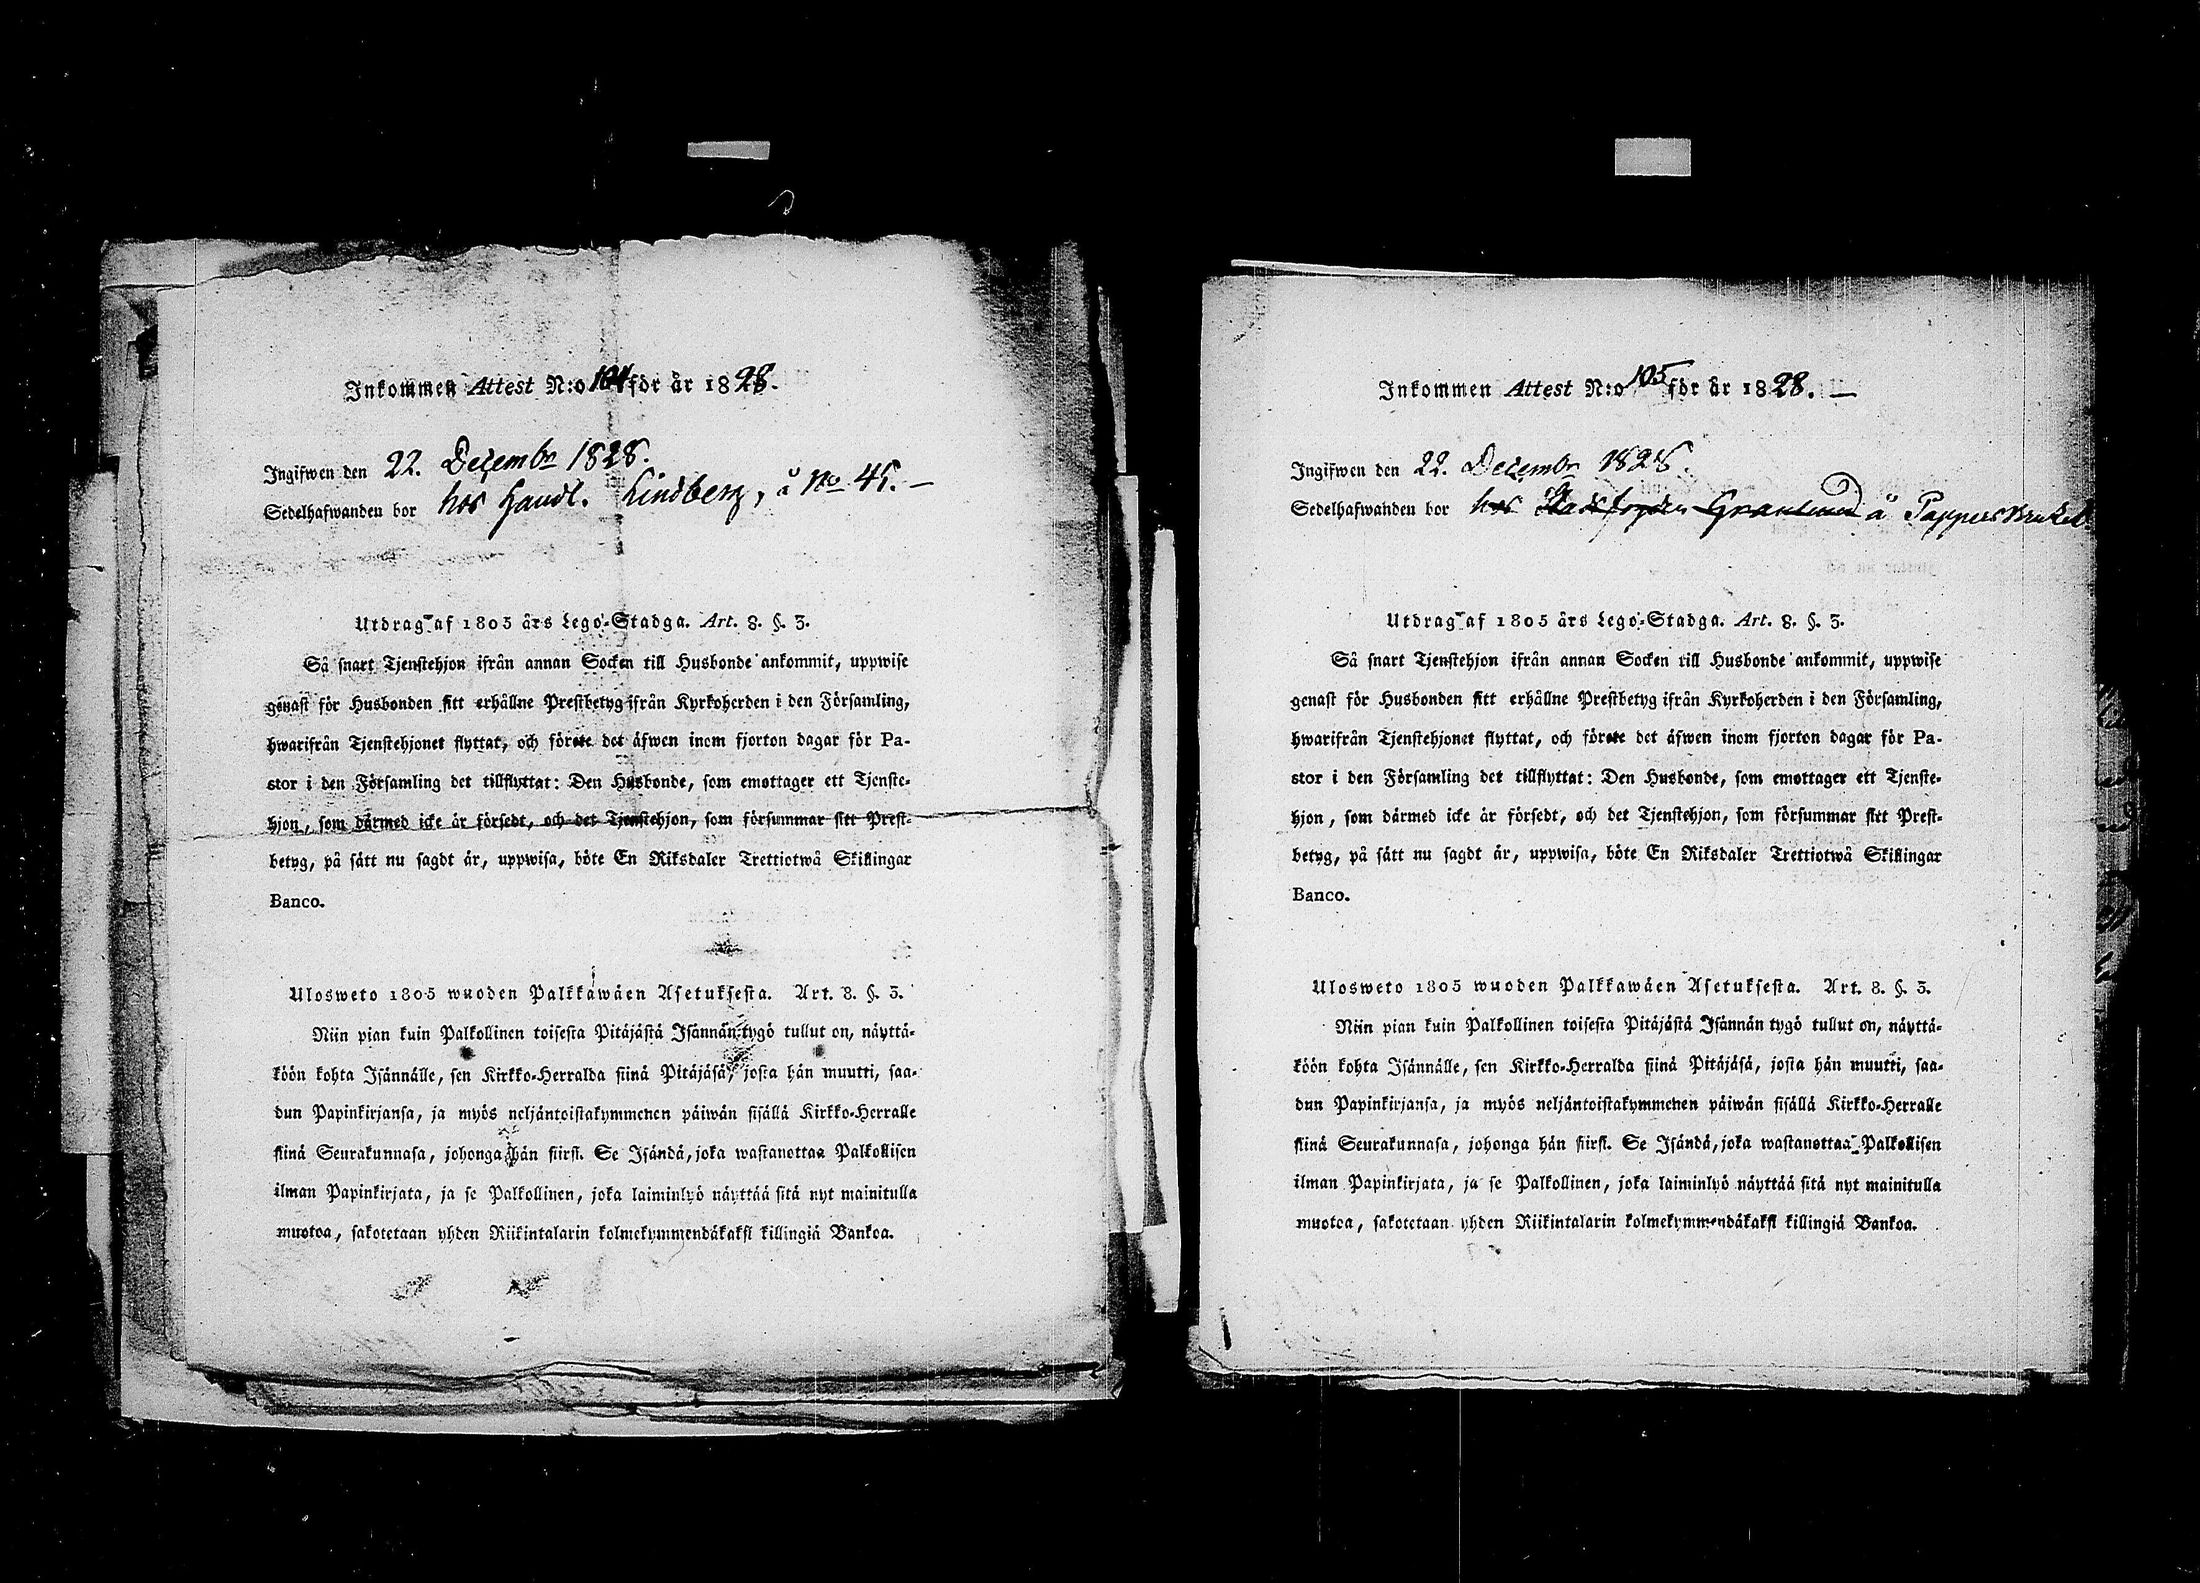 Inkommen Attest N:o 104 för år 1828.
Ingifwen den 22. Decembr 1828.
Sedelhafwanden bor hos Handl. Lindberg, å No 45.
Utdrag af 1805 års Lego-Stadga. Art. 8. §. 3.
Så snart Tjenstehjon ifrån annan Socken till Husbonde ankommit, uppwise
genast för Husbonden sitt erhållne Prestbetyg ifrån Kyrkoherden i den Församling,
hwarifrån Tjenstehjonet flyttat, och förete det äfwen inom fjorton dagar för Pa-
stor i den Församling det tillflyttat: Den Husbonde, som emottager ett Tjenste-
hjon, som därmed icke är försedt, och det Tjenstehjon, som försummar sitt Prest-
betyg, på sätt nu sagdt är, uppwisa, böte En Riksdaler Trettiotwå Skillingar
Banco.
Ulosweto 1805 wuoden Palkkawäen Asetuksesta. Art. 8. §. 3.
Niin pian kuin Palkollinen toisesta Pitäjästä Isännän tygö tullut on, näyttä-
köön kohta Isännälle, sen Kirkko-Herralda siinä Pitäjäsä, josta hän muutti, saa-
dun Papinkirjansa, ja myös neljäntoistakymmenen päiwän sisällä Kirkko-Herralle
siinä Seurakunnasa, johonga hän siirst. Se Isändä, joka wastanottaa Palkollisen
ilman Papinkirjata, ja se Palkollinen, joka laiminlyö näyttää sitä nyt mainitulla
muotoa, sakotetaan yhden Riikintalarin kolmekymmendäkaksi killingiä Bankoa.
Inkommen Attest N:o 105 för år 1828.
Ingifwen den 22. Decembr 1828.
Sedelhafwanden bor hos Stadsfogden Granlund å Pappersbruket
Utdrag af 1805 års Lego-Stadga. Art. 8. §. 3.
Så snart Tjenstehjon ifrån annan Socken till Husbonde ankommit, uppwise
genast för Husbonden sitt erhållne Prestbetyg ifrån Kyrkoherden i den Församling,
hwarifrån Tjenstehjonet flyttat, och förete det äfwen inom fjorton dagar för Pa-
stor i den Församling det tillflyttat: Den Husbonde, som emottager ett Tjenste-
hjon, som därmed icke är försedt, och det Tjenstehjon, som försummar sitt Prest-
betyg, på sätt nu sagdt är, uppwisa, böte En Riksdaler Trettiotwå Skillingar
Banco.
Ulosweto 1805 wuoden Palkkawäen Asetuksesta. Art. 8. §. 3.
Niin pian kuin Palkollinen toisesta Pitäjästä Isännän tygö tullut on, näyttä-
köön kohta Isännälle, sen Kirkko-Herralda siinä Pitäjäsä, josta hän muutti, saa-
dun Papinkirjansa, ja myös neljäntoistakymmenen päiwän sisällä Kirkko-Herralle
siinä Seurakunnasa, johonga hän siirst. Se Isändä, joka wastanottaa Palkollisen
ilman Papinkirjata, ja se Palkollinen, joka laiminlyö näyttää sitä nyt mainitulla
muotoa, sakotetaan yhden Riikintalarin kolmekymmendäkaksi killingiä Bankoa.